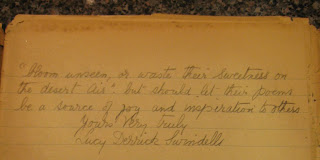 "Bloom unseen, or waste their Sweetness on
the desert Air". but should let their poems
be a source of joy and inspiration to others
Yours Very Truly
Lucy Derrick Swindells